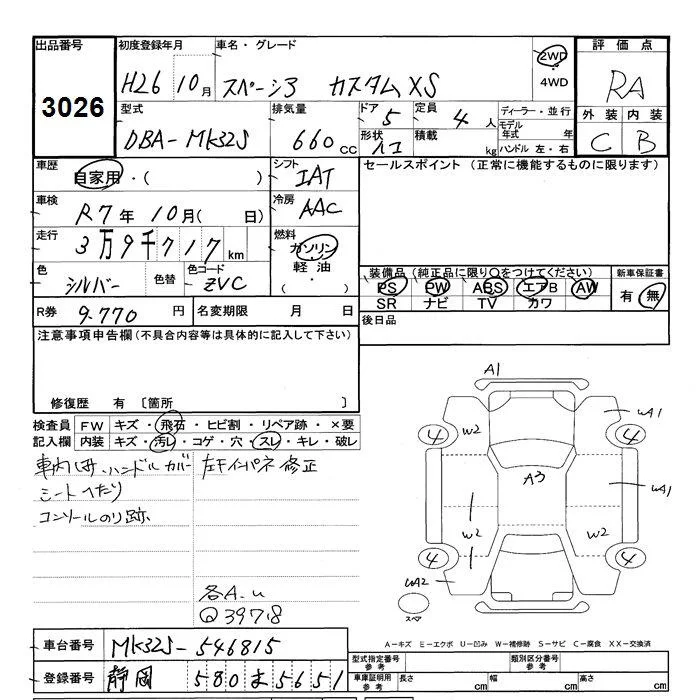 出品番号 初度登録年月 車名・グレード 2WD 評価点
3026 H26 10月 スペーシア カスタム XS 4WD RA
型式 排気量 ドア 定員 ディーラー・並行 外装 内装
DBA-MK32S 660cc 5 4人 モデル年式 年 C B
形状 積載 kg ハンドル 左・右
車歴 自家用・( ) シフト IAT セールスポイント (正常に機能するものに限ります)
車検 R7年10月( 日) 冷房 AAC
走行 3万9千717km 燃料 ガソリン・軽油 ( ・ )
装備品 (純正品に限り○をつけてください) 新車保証書
色 シルバー 色替 色コード ZVC PS PW ABS エアB AW 有・無
SR ナビ TV カワ
R券 9.770円 名変期限 月 日 後日品
注意事項申告欄 (不具合内容等は具体的に記入して下さい)
修復歴 有 〔箇所 〕
検査員 FW キズ・飛石・ヒビ割・リペア跡・×要
記入欄 内装 キズ・汚レ・コゲ・穴・スレ・キレ・破レ
ハンドルカバー 左インパネ修正
シートへたり
コンソールのり跡
各A.u
Q39718
A1
4 W2 4 wA1
A3 wA1
W2 W2
4 4
wA2
スペア
A-キズ E-エクボ U-凹み W-補修跡 S-サビ C-腐食 XX-交換済
車台番号 MK32S-546815
型式指定番号 参考 類別区分番号 参考
登録番号 静岡 580 ま 5651
車庫証明用 参考 長さ cm 幅 cm 高さ cm